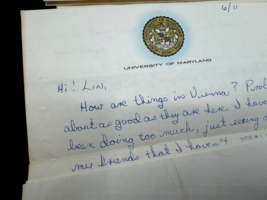 6/11
UNIVERSITY OF MARYLAND
Hi! LIN,
How are things in Vienna?
about as good as they are here. I have
been doing too much, just seeing a
my friends that I haven't